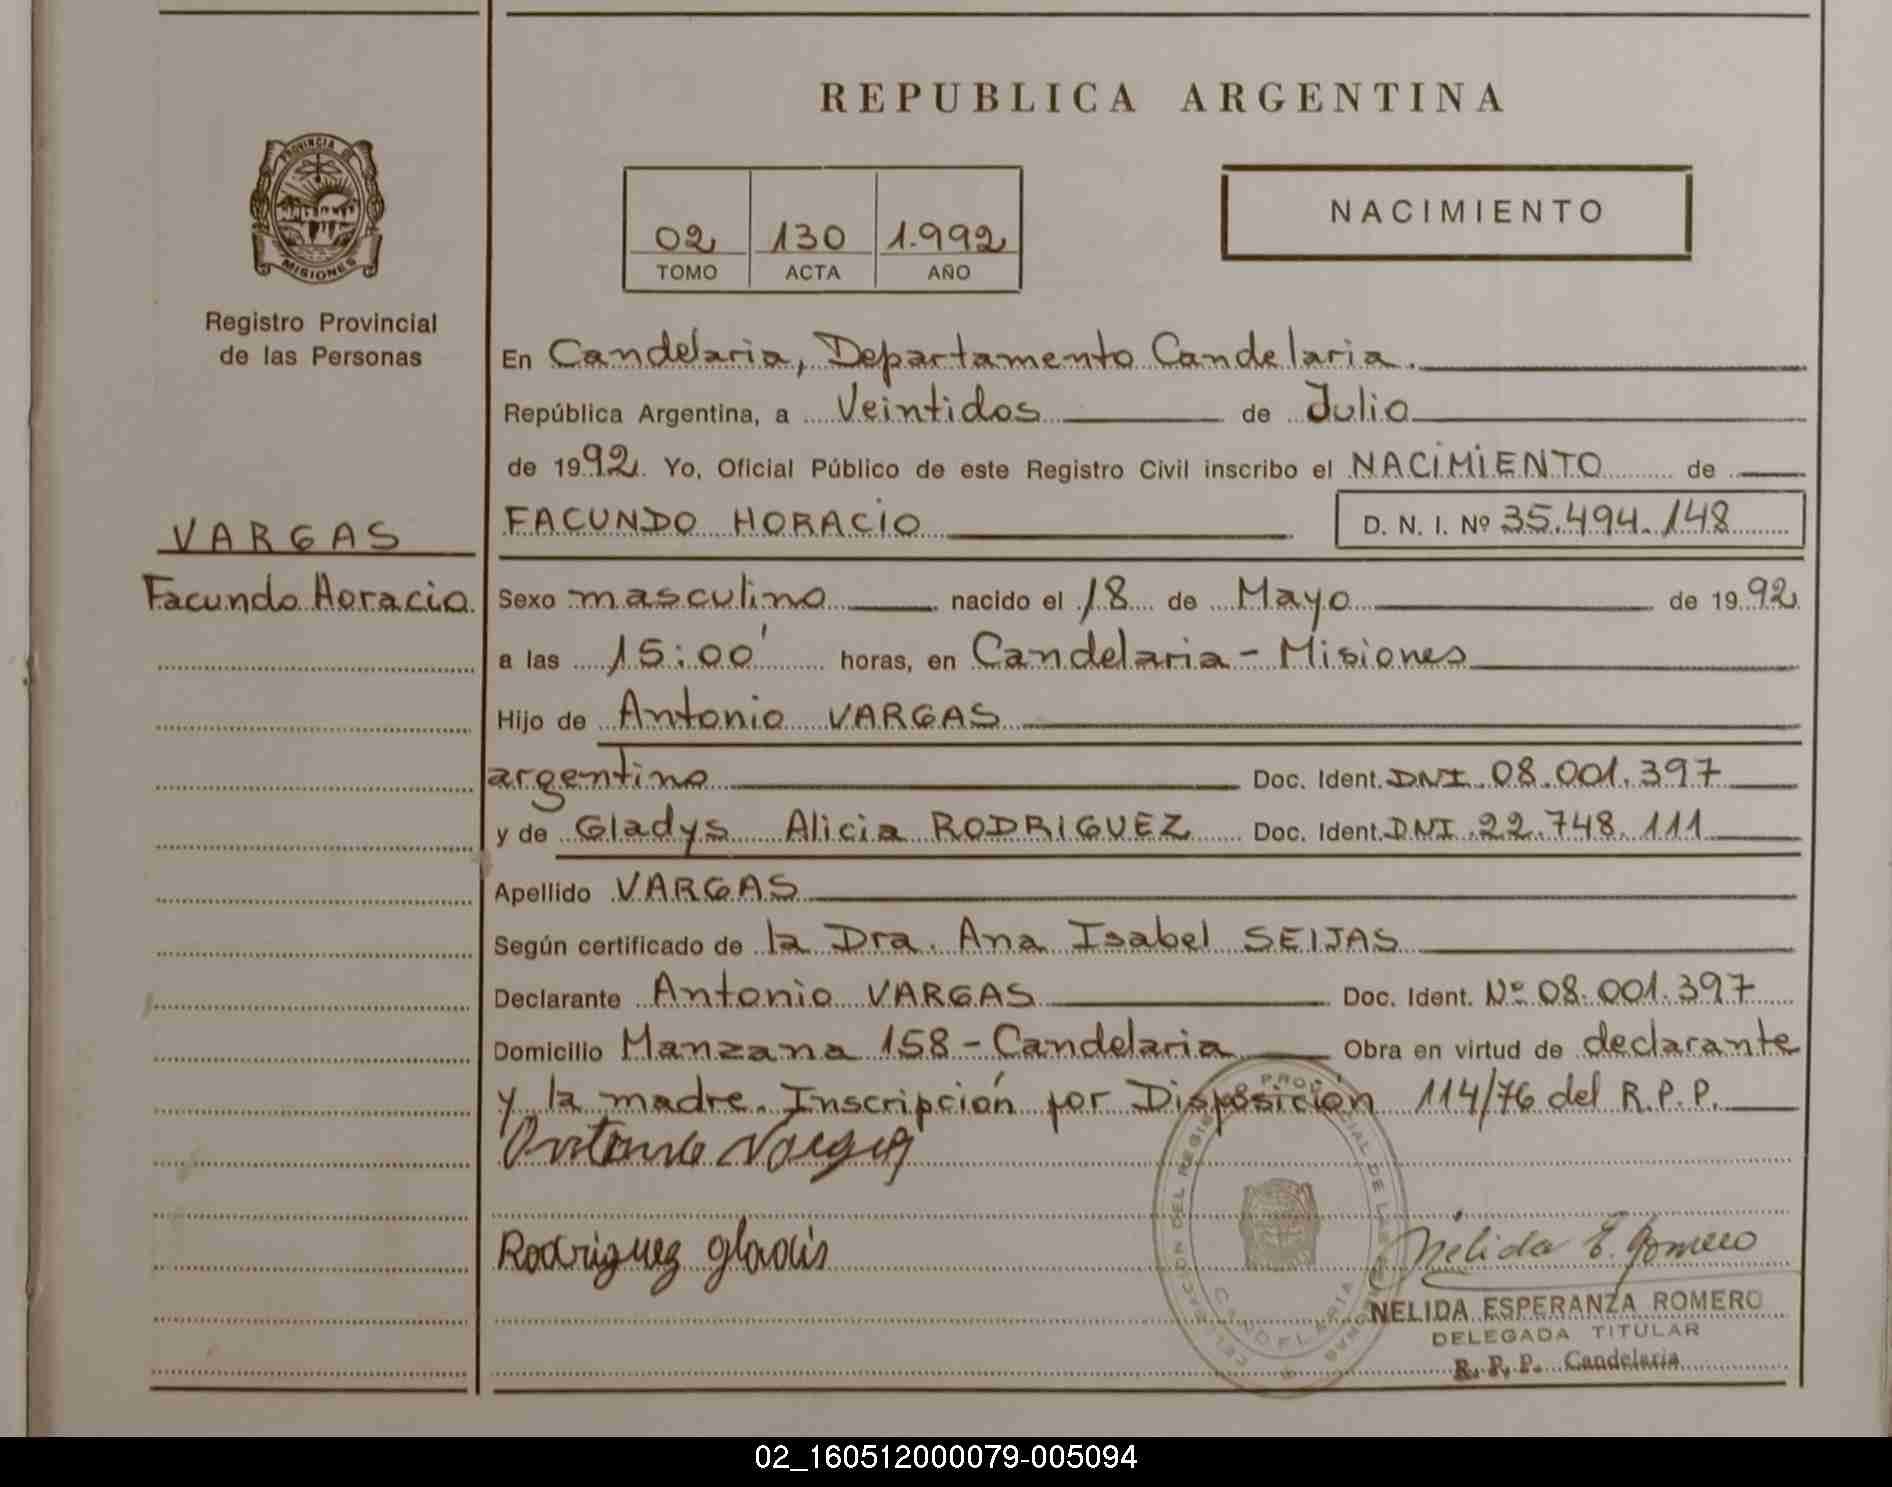 REPUBLICA ARGENTINA
PROVINCIA DE
MISIONES
Registro Provincial
de las Personas
02 130 1.992
TOMO ACTA AÑO
NACIMIENTO
En Candelaria, Departamento Candelaria.
República Argentina, a Veintidos de Julio
de 1992. Yo, Oficial Público de este Registro Civil inscribo el NACIMIENTO de
FACUNDO HORACIO D. N. I. Nº 35.494.148
VARGAS
Facundo Horacio
Sexo masculino nacido el 18 de Mayo de 1992
a las 15:00' horas, en Candelaria - Misiones
Hijo de Antonio VARGAS
argentino Doc. Ident. DNI. 08.001.397
y de Gladys Alicia RODRIGUEZ Doc. Ident. DNI. 22.748.111
Apellido VARGAS
Según certificado de la Dra. Ana Isabel SEIJAS
Declarante Antonio VARGAS Doc. Ident. Nº 08.001.397
Domicilio Manzana 158 - Candelaria Obra en virtud de declarante
y la madre. Inscripción por Disposición 114/76 del R.P.P.
Antonio Vargas
Rodriguez gladis
Nelida E. Romero
NELIDA ESPERANZA ROMERO
DELEGADA TITULAR
R. P. P. Candelaria
DEL REGISTRO PROVINCIAL DE LAS
CANDELARIA
02_160512000079-005094